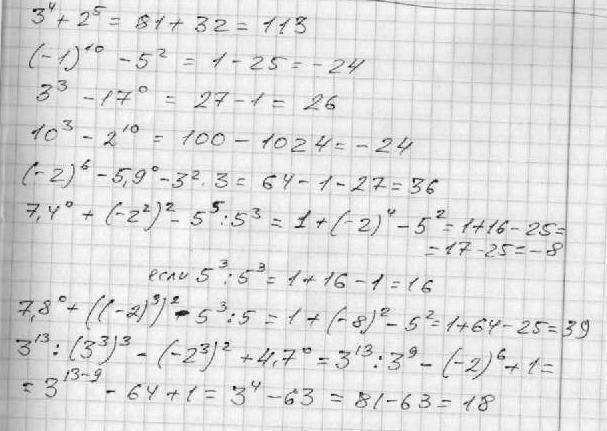 3⁴ + 2⁵ = 81 + 32 = 113
(-1)¹⁰ - 5² = 1 - 25 = -24
3³ - 17⁰ = 27 - 1 = 26
10³ - 2¹⁰ = 100 - 1024 = -24
(-2)⁶ - 5,9⁰ - 3² · 3 = 64 - 1 - 27 = 36
7,4⁰ + (-2²)² - 5⁵ : 5³ = 1 + (-2)⁴ - 5² = 1 + 16 - 25 =
= 17 - 25 = -8
если 5³ : 5³ = 1 + 16 - 1 = 16
7,8⁰ + ((-2)³)² - 5³ : 5 = 1 + (-8)² - 5² = 1 + 64 - 25 = 39
3¹³ : (3³)³ - (-2³)² + 4,7⁰ = 3¹³ : 3⁹ - (-2)⁶ + 1 =
= 3¹³⁻⁹ - 64 + 1 = 3⁴ - 63 = 81 - 63 = 18